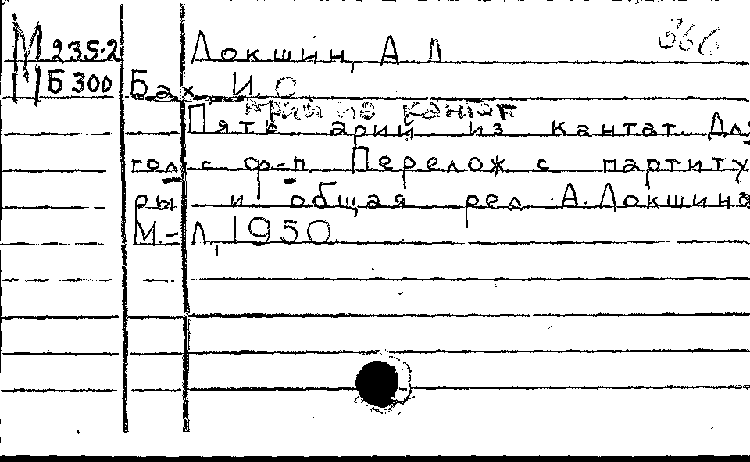 М 235-2 Локшин, А Л
Б 300 Бах, И. С.
Арии из кантат
Пять арий из кантат. Для
гол. с ф-п. Перелож с партиту
ры и общая ред А. Локшина
М.-Л, 1950